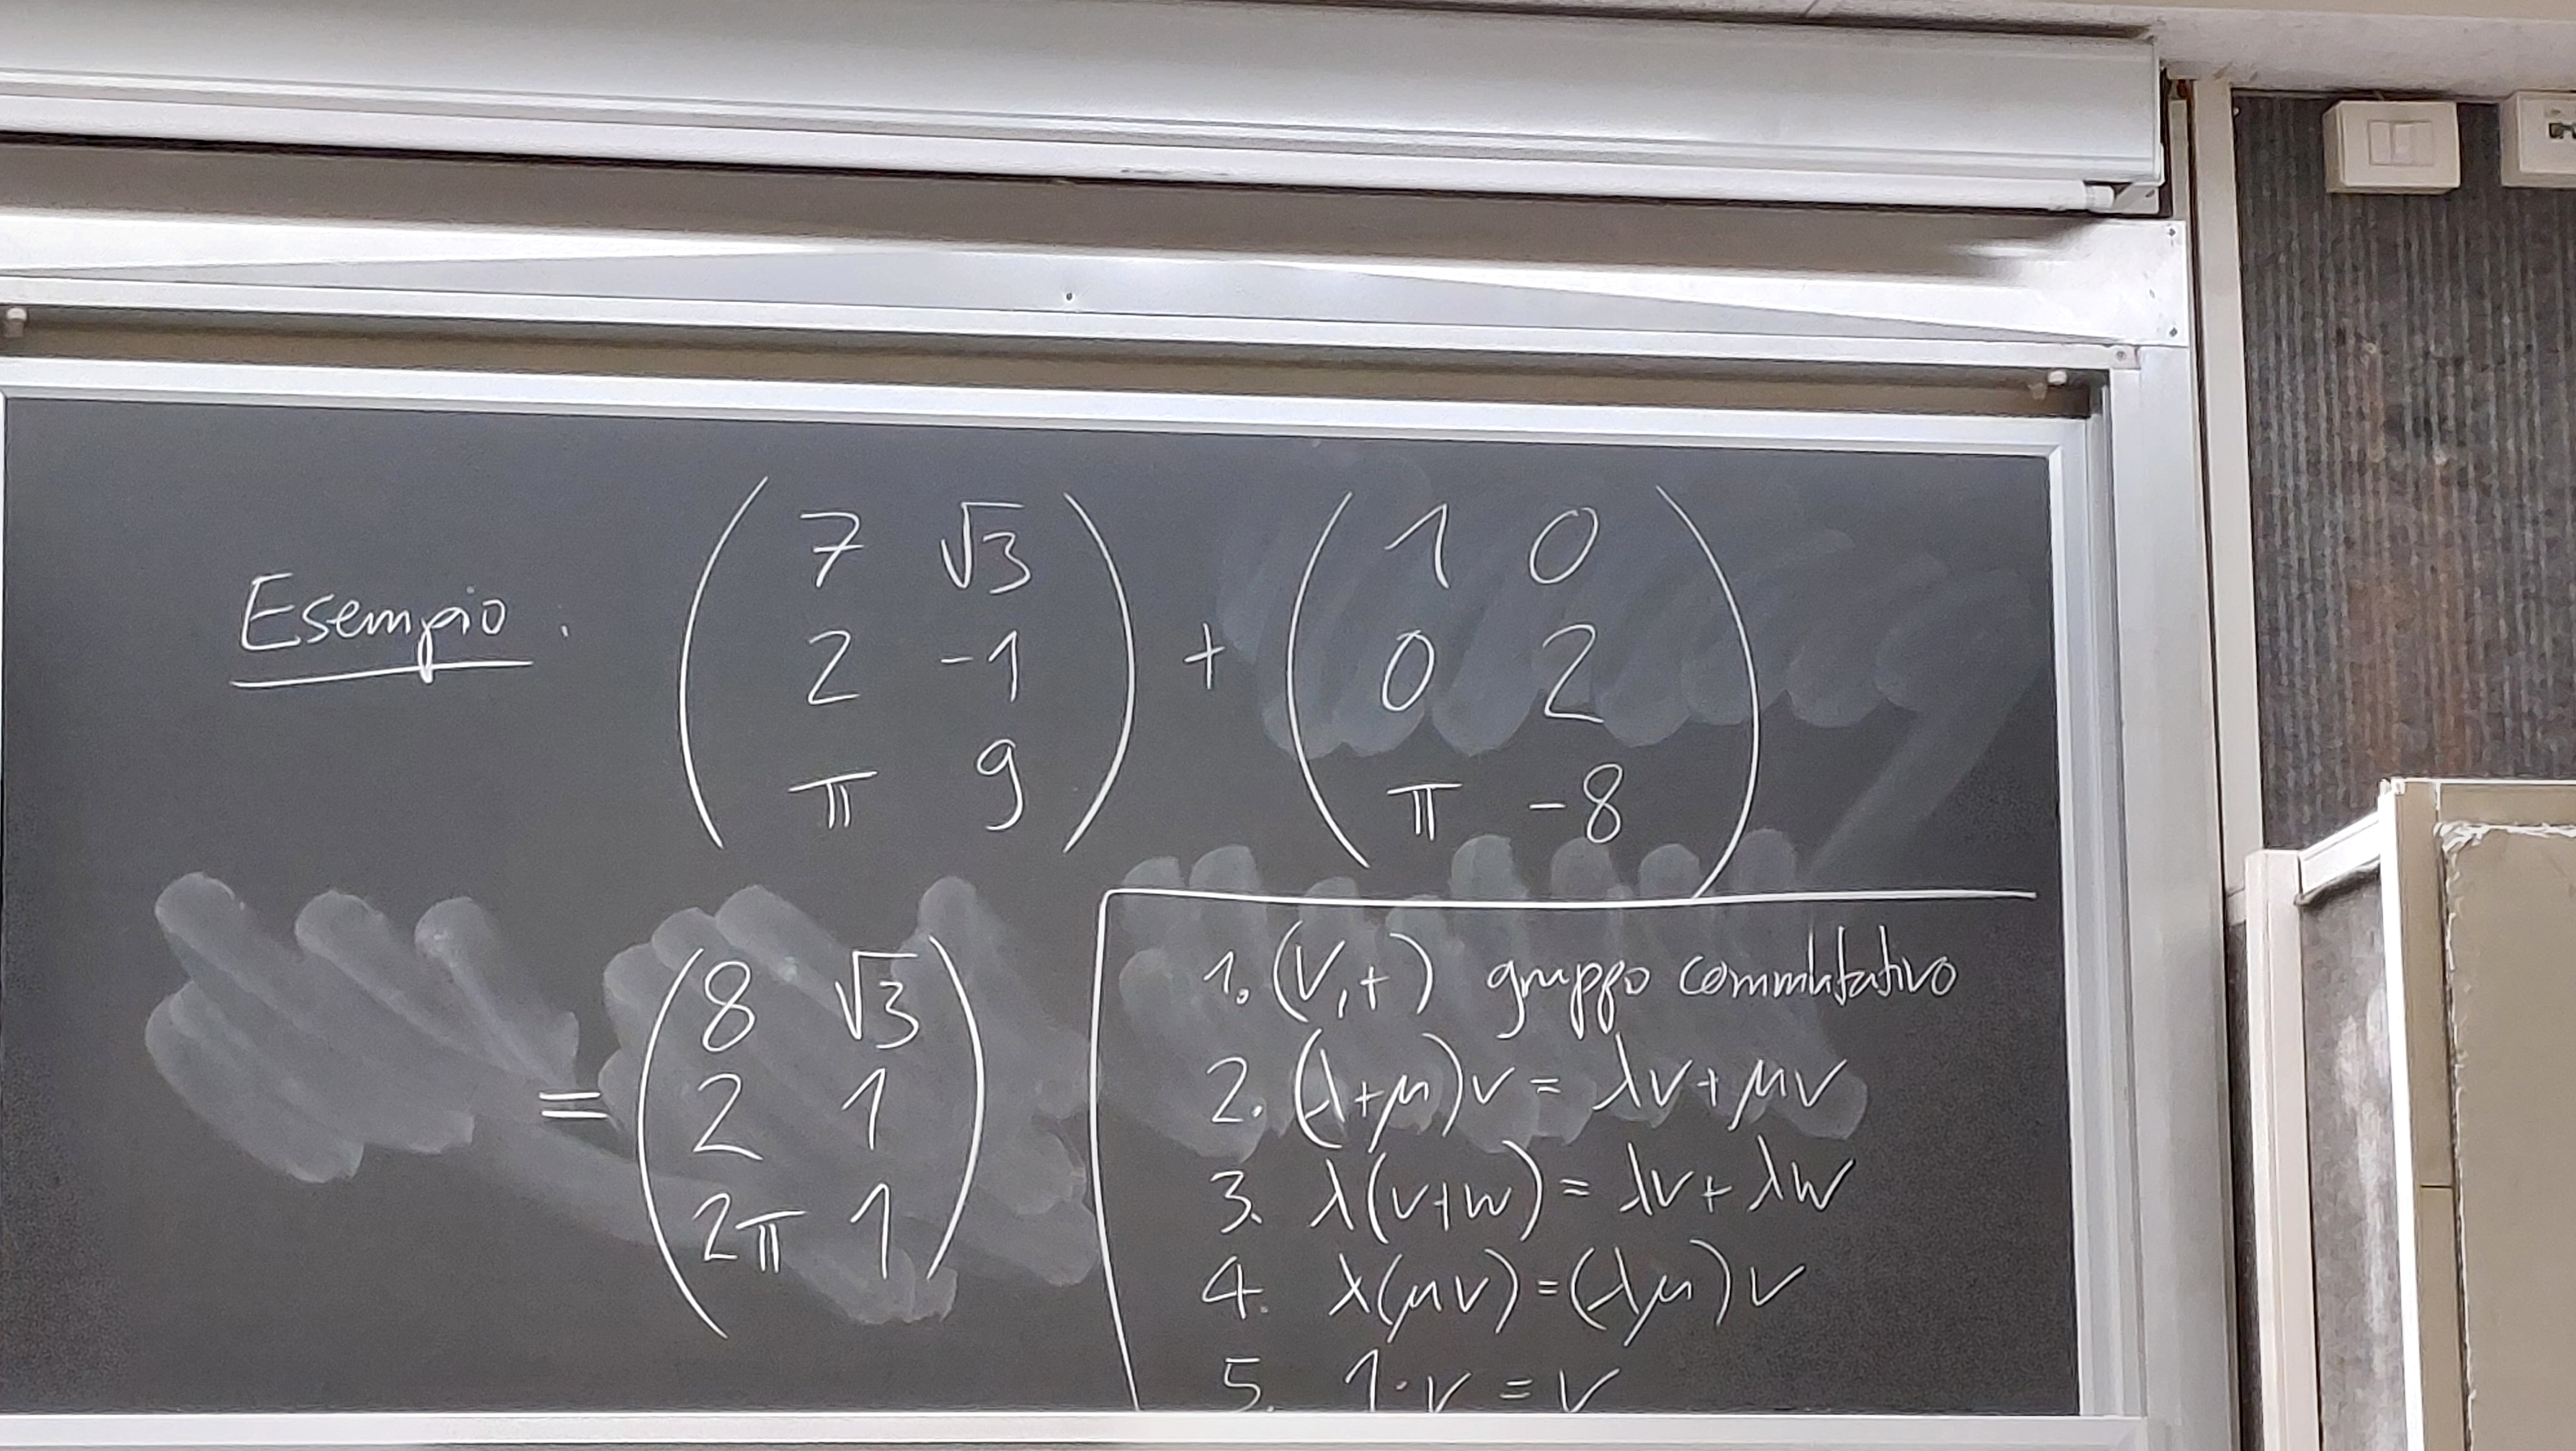 Esempio.
( 7 √3 ) + ( 1 0 )
( 2 -1 ) ( 0 2 )
( π 9 ) ( π -8 )
= ( 8 √3 )
( 2 1 )
( 2π 1 )
1. (V,+) gruppo commutativo
2. (λ+μ)v = λv+μv
3. λ(v+w) = λv+λw
4. λ(μv)=(λμ)v
5. 1·v = v